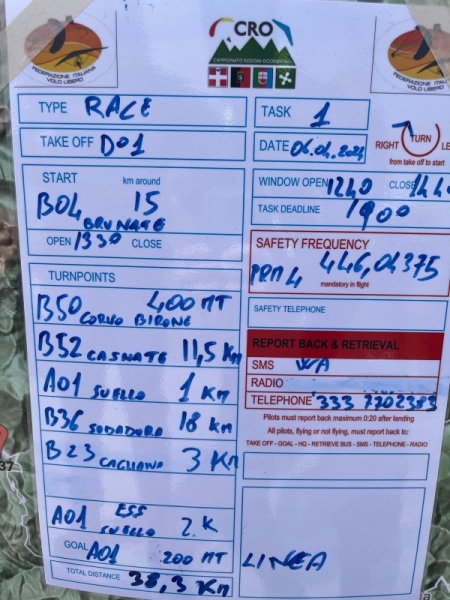 FEDERAZIONE ITALIANA
VOLO LIBERO
CRO
CAMPIONATO REGIONI OCCIDENTALI
FEDERAZIONE ITALIANA
VOLO LIBERO
TYPE RACE
TASK 1
TAKE OFF D01
DATE 06.04.2024
RIGHT TURN LE
from take off to start
START km around
B04 15
BRUNATE
OPEN 1330 CLOSE
WINDOW OPEN 1240 CLOSE 144
TASK DEADLINE 1900
SAFETY FREQUENCY
446,04375
mandatory in flight
SAFETY TELEPHONE
TURNPOINTS
B50 CORVO BIRONE 400 MT
B52 CASNATE 11,5 KM
A01 SUELLO 1 KM
B36 18 KM
B23 CAGLIANO 3 KM
A01 ESS SUELLO 2.K
GOAL A01 200 MT
TOTAL DISTANCE 38,3 KM
REPORT BACK & RETRIEVAL
SMS WA
RADIO
TELEPHONE 333 2202383
Pilots must report back maximum 0:20 after landing
All pilots, flying or not flying, must report back to:
TAKE OFF - GOAL - HQ - RETRIEVE BUS - SMS - TELEPHONE - RADIO
LINEA
37